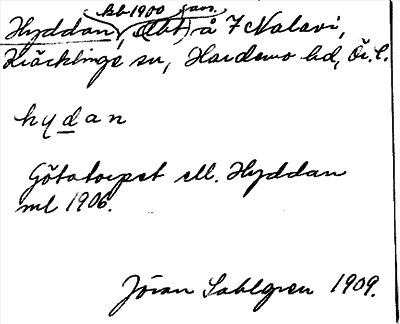 kb 1900 fam.
Hyddan, (lht) å 7 Nalavi,
Kräcklinge sn, Hardemo hd, Ör. l.
hydan
Götatorpet ell. Hyddan
ml 1906.
Jöran Sahlgren 1909.